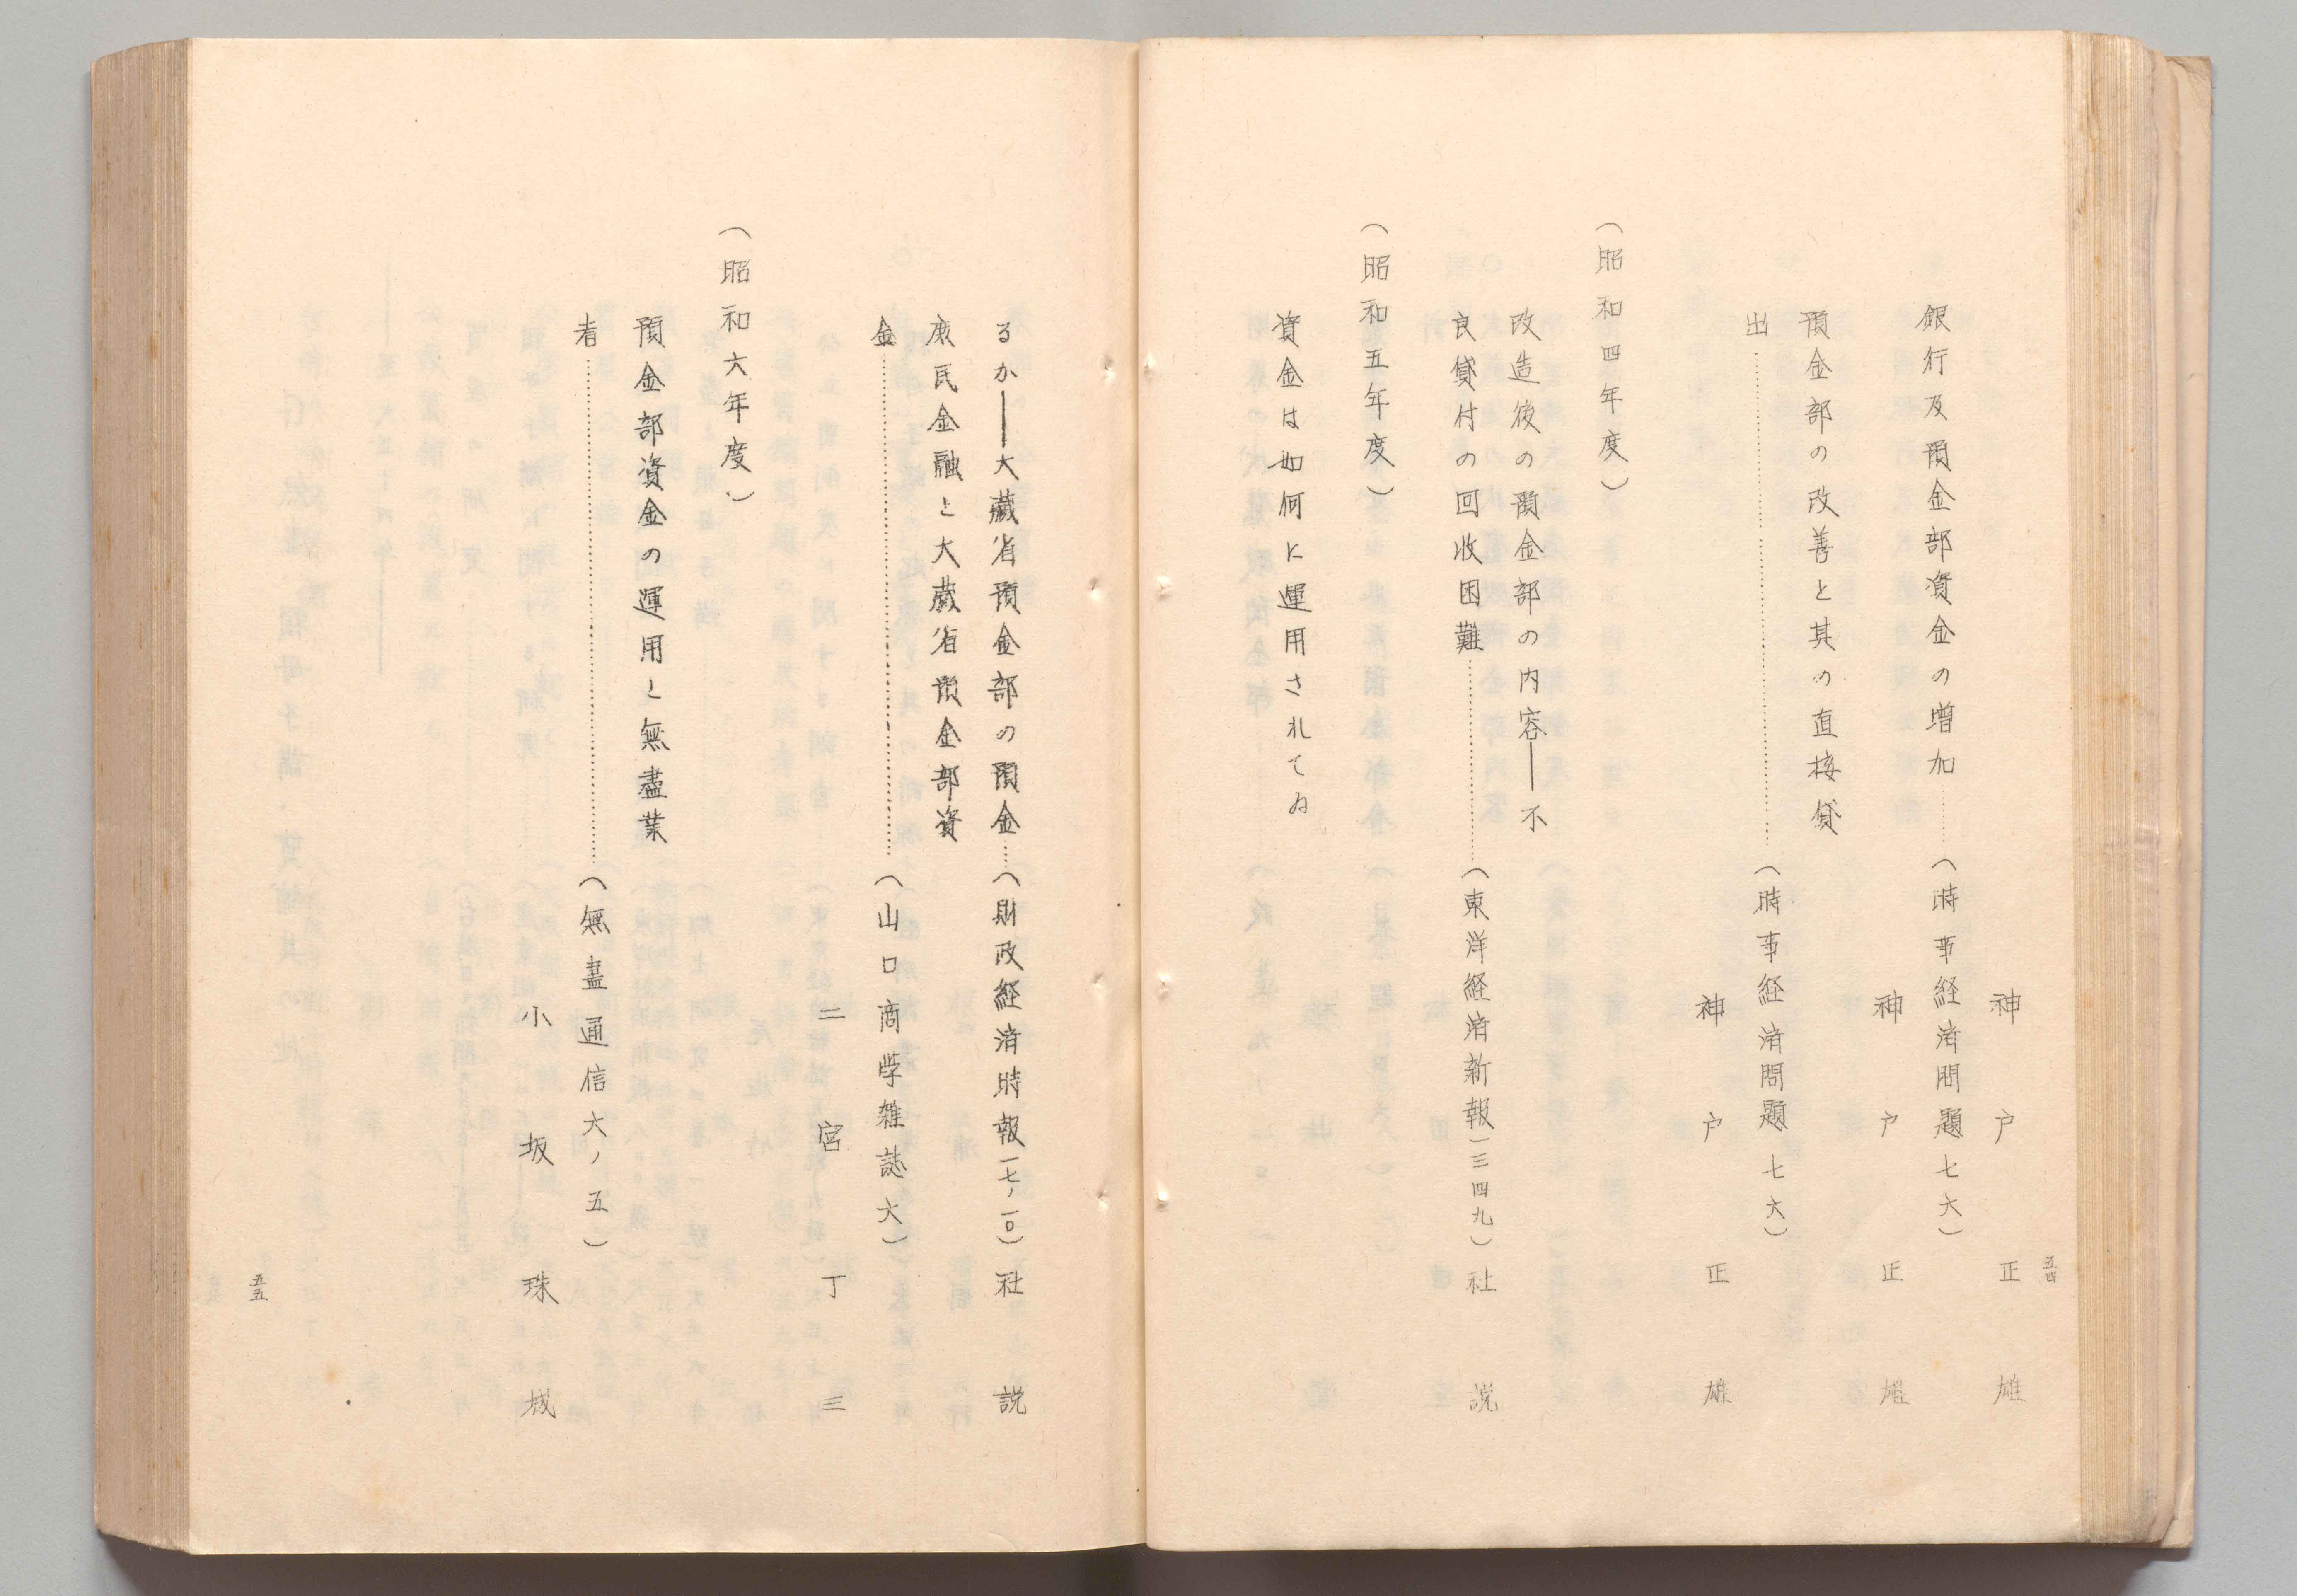 五四
神戸正雄
銀行及預金部資金の増加……(時事経済問題七六)
神戸正雄
預金部の改善と其の直接貸
出……(時事経済問題七六)
神戸正雄
(昭和四年度)
改造後の預金部の内容――不
良貸付の回収困難……(東洋経済新報一三四九)社説
(昭和五年度)
資金は如何に運用されてゐ
るか――大蔵省預金部の預金……(財政経済時報一七ノ一〇)社説
庶民金融と大蔵省預金部資
金……(山口商学雑誌六)
二宮丁三
(昭和六年度)
預金部資金の運用と無盡業
者……(無盡通信六ノ五)
小坂珠城
五五